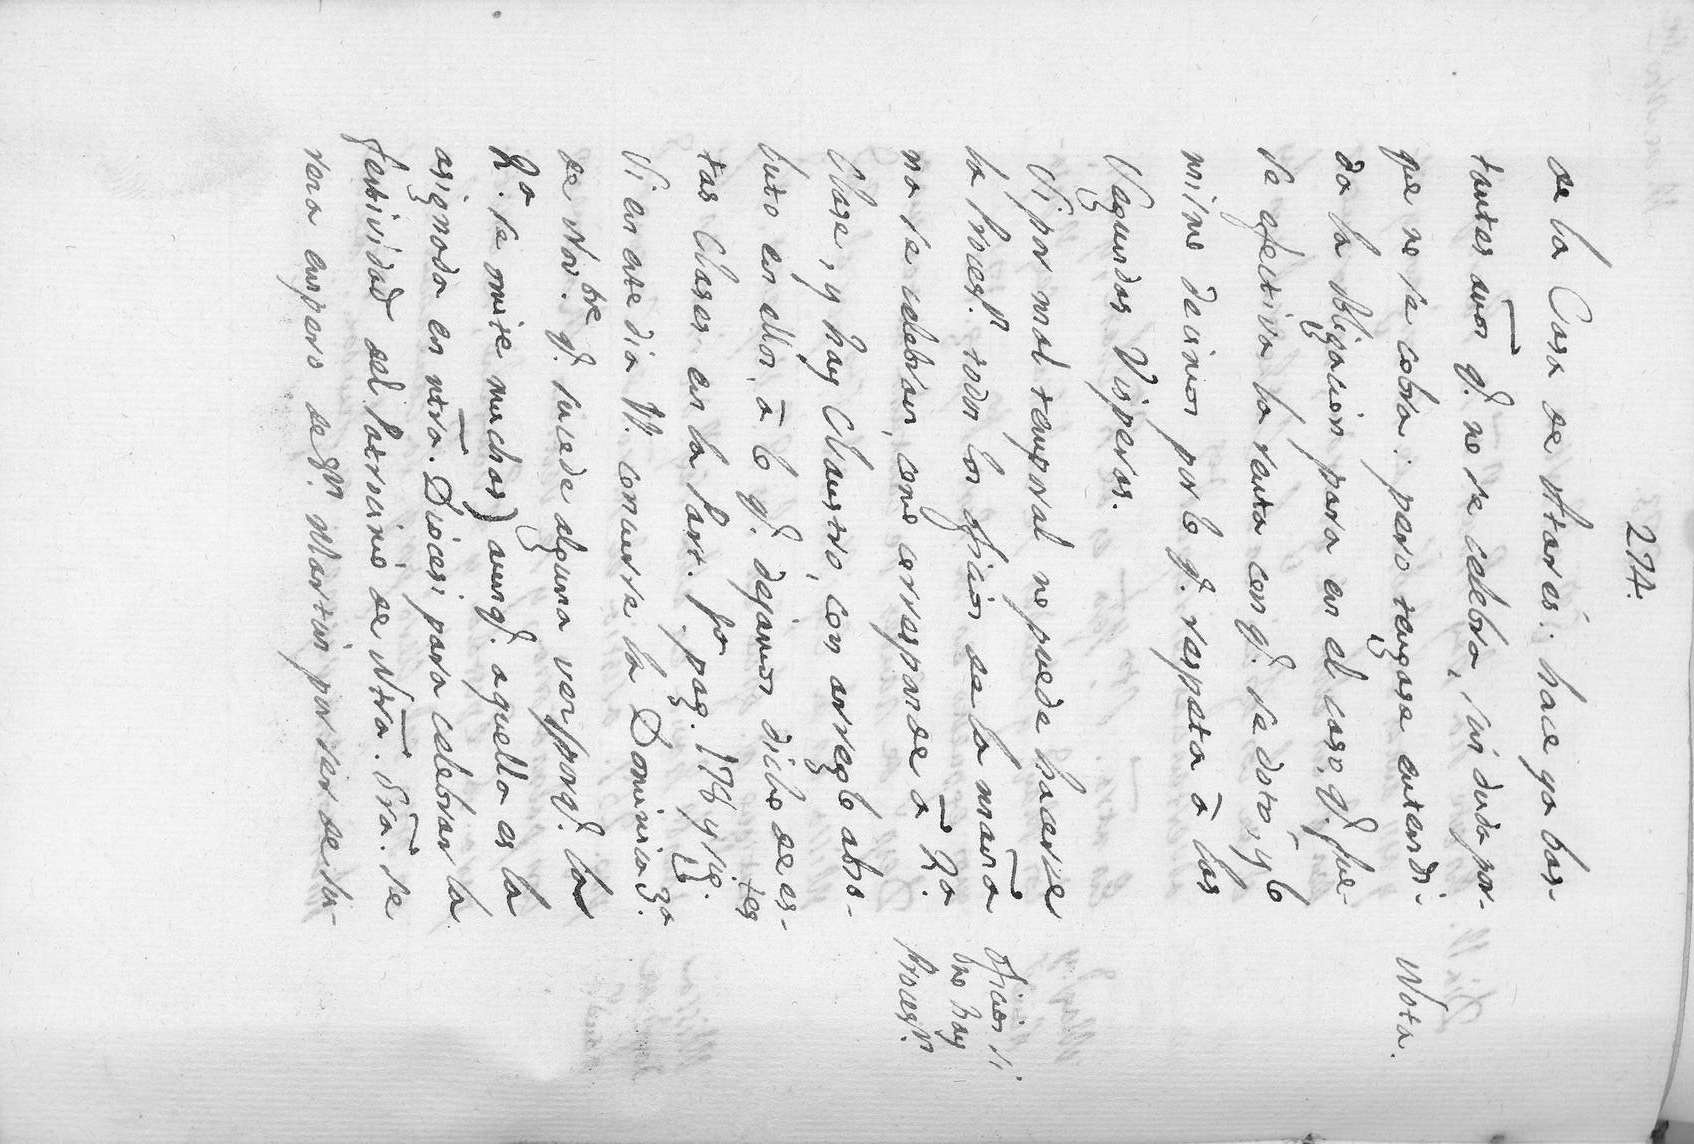 274.
de la Casa de Atarés: hace ya bas-
tantes añs q.e no se celebra, sin duda por-
que no se cobra: pero tengase entendi-
do la obligacion para en el caso, q.e fue-
se efectiva la renta con q.e se dotó, y lo
mismo decimos por lo q.e respeta â las
Segundas Visperas.
Si por mal temporal no puede hacerse
la Proces.n todos los oficios de la mañ̄a
no se celebran, como corresponde â 2.a
Clase, y hay Claustro, con arreglo abso-
luto en ellos, â lo q.e dejamos dicho de es-
tas Clases en la Part. 1.a pag. 178 y sig.tes
Si en este dia 11. concurre la Dominica 3.a
de Nov.bre q.e sucede alguna vez (porq.e la
2.a se omite muchas) aunq.e aquella es la
asignada en ntra. Diocesi para celebrar la
festividad del Patrocinio de Ntra. Sra. se
reza empero de S.n Martin por ser de su-
Nota.
Oficios si
no hay
Proces.n